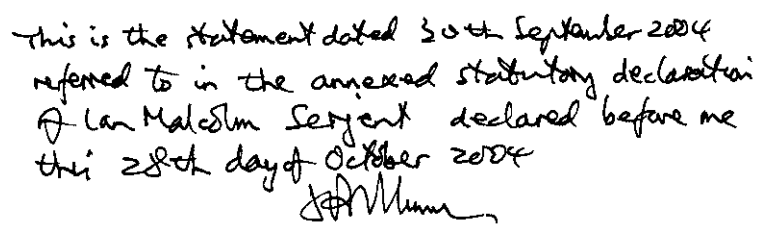 This is the statement dated 30th September 2004
referred to in the annexed statutory declaration
of Ian Malcolm Serjent declared before me
this 28th day of October 2004